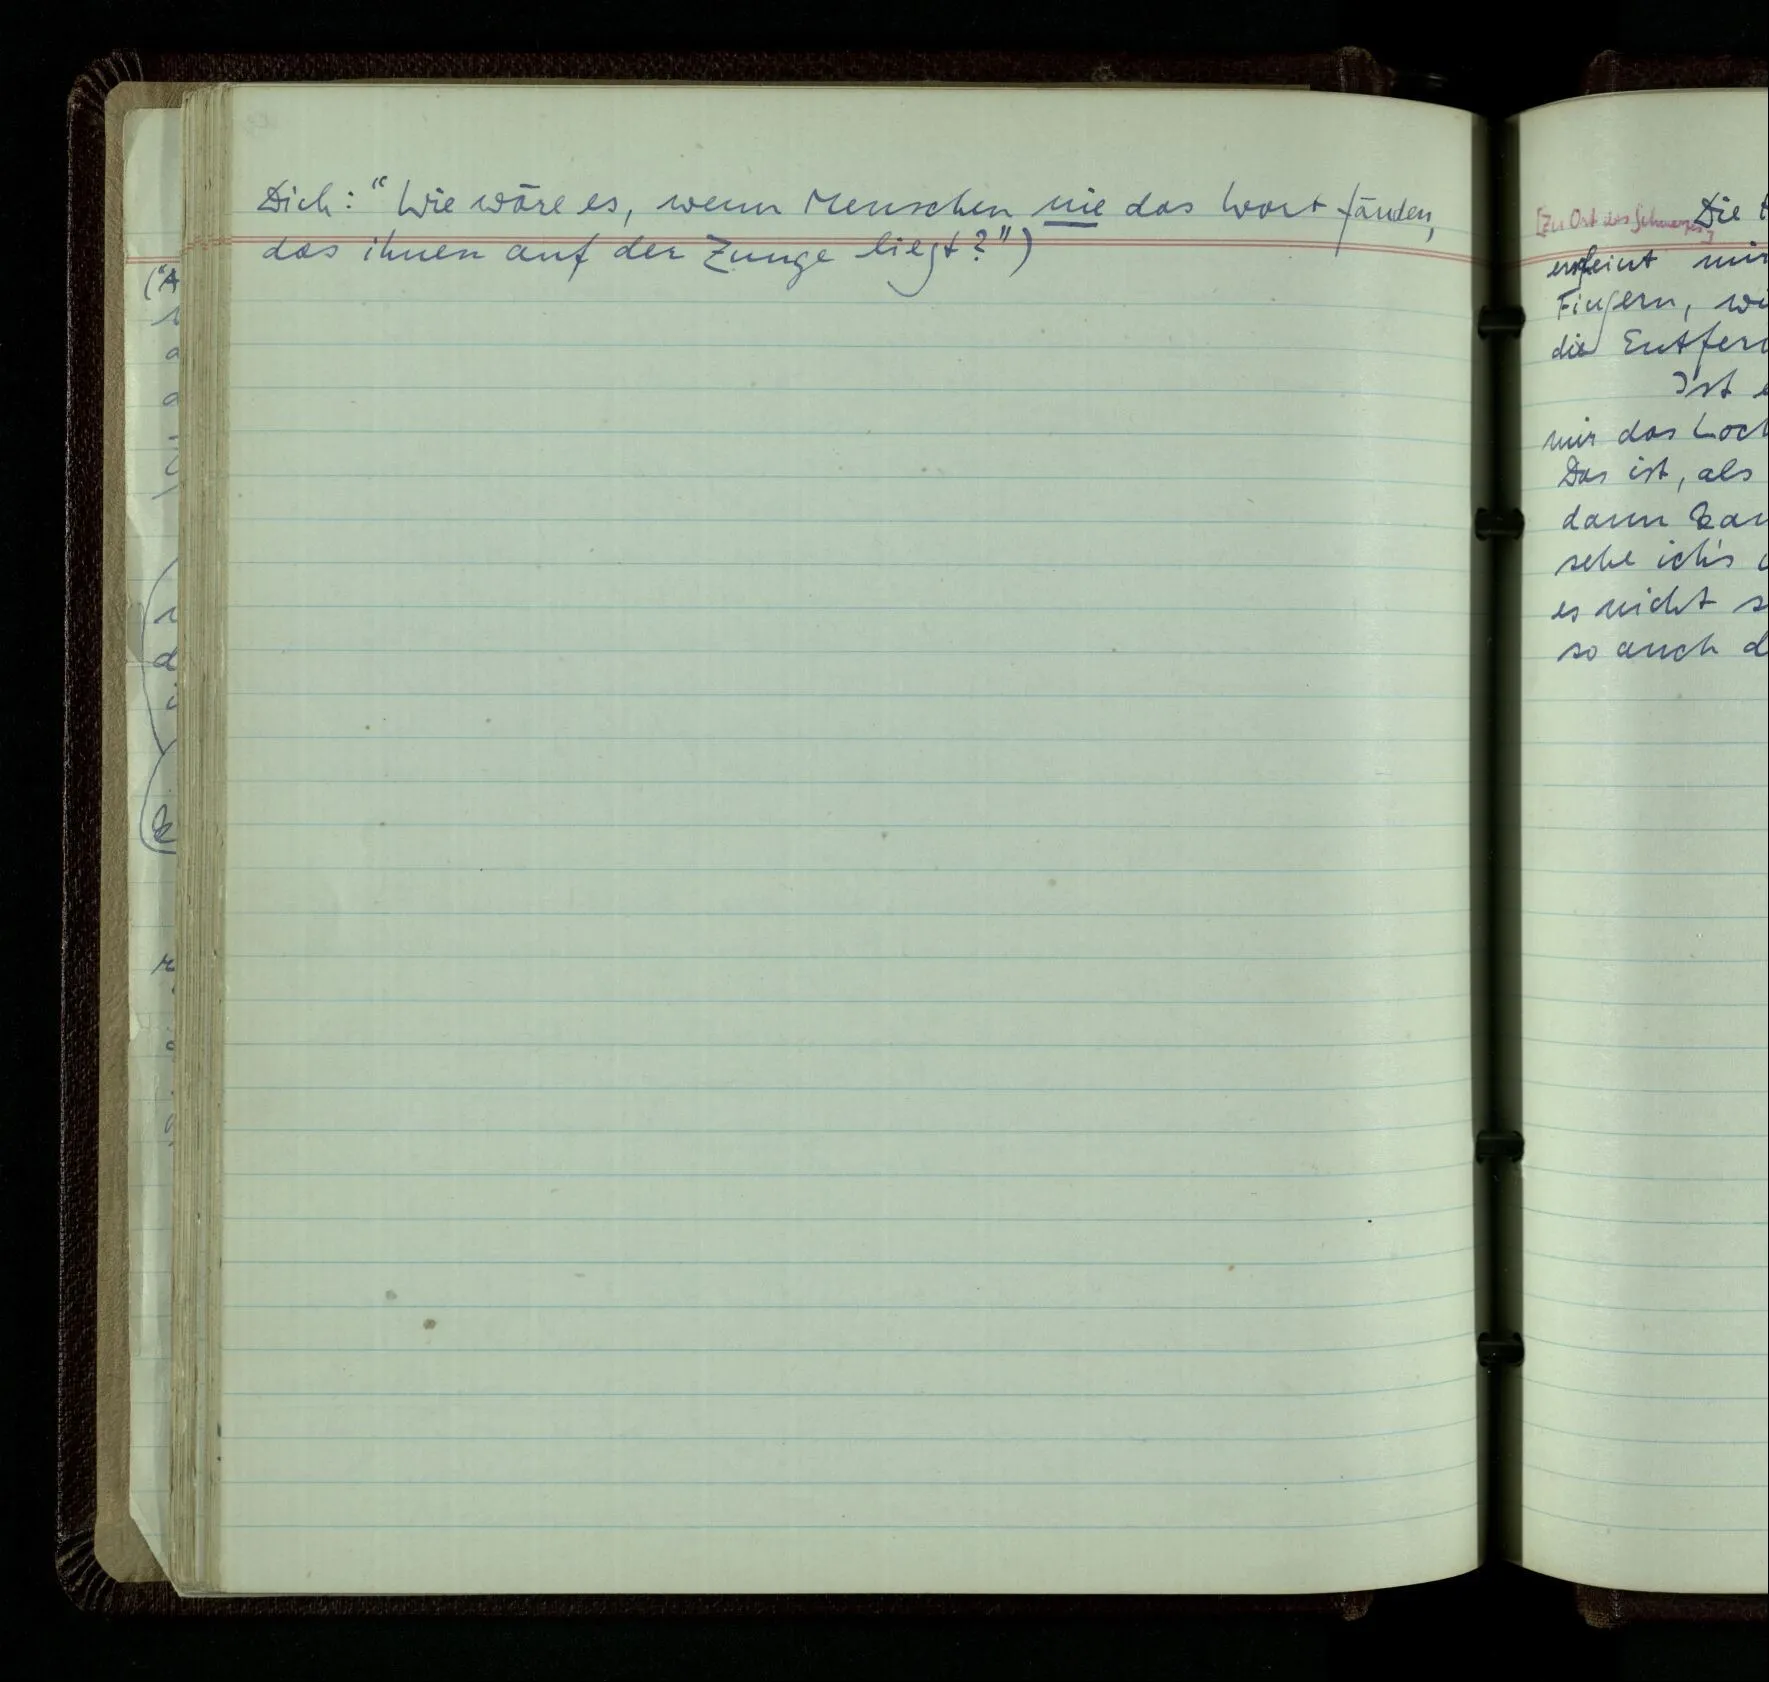 Dich: “Wie wäre es, wenn Menschen nie das Wort fänden,
das ihnen auf der Zunge liegt?”)
[Zu Ort des Schmerzes] Die
erscheint mir
Fingern, wi
die Entfern
Ist e
mir das Loch
Das ist, als
dann kan
sehe ich's
es nicht s
so auch d